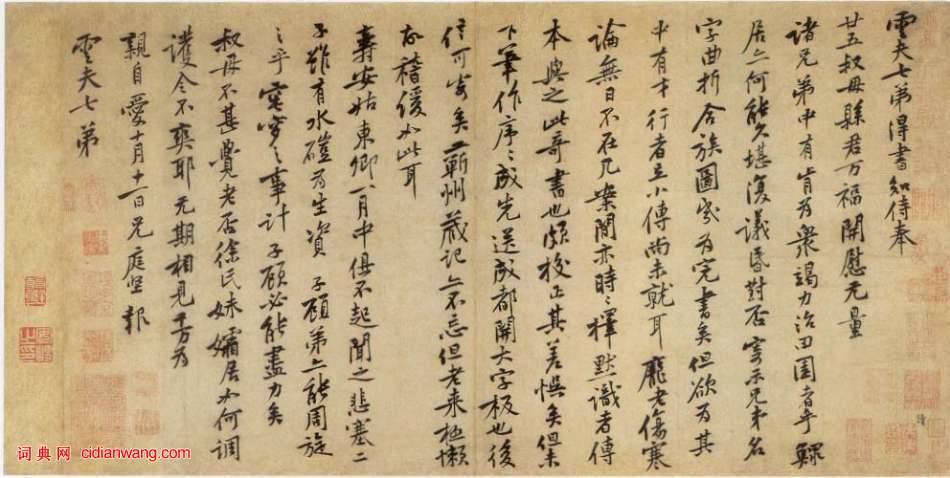 雲夫七弟得書知侍奉
廿五叔母縣君万福開慰无量
諸兄弟中有肯為衆竭力治田園者乎鰥
居亦何能久堪復議昏對否寄示兄弟名
字曲折合族圖茲為完書矣但欲為其
中有才行者立小傳尚未就耳龐老傷寒
論無日不在几案間亦時〻擇默識者傳
本與之此奇書也頗校正其差悞矣但未
下筆作序〻成先送成都開大字板也後
信可寄矣蘄州藏記亦不忘但老来極懶
故稽緩如此耳
壽安姑東卿一月中俱不起聞之悲塞二
子雖有水磑為生資子顧弟亦能周旋
之乎窀穸之事計子顧必能盡力矣
叔母不甚覺老否徐氏妹孀居如何調
護令不爽耶无期相見千万為
親自愛十月十一日兄庭堅報
雲夫七弟
词典网 cidianwang.com